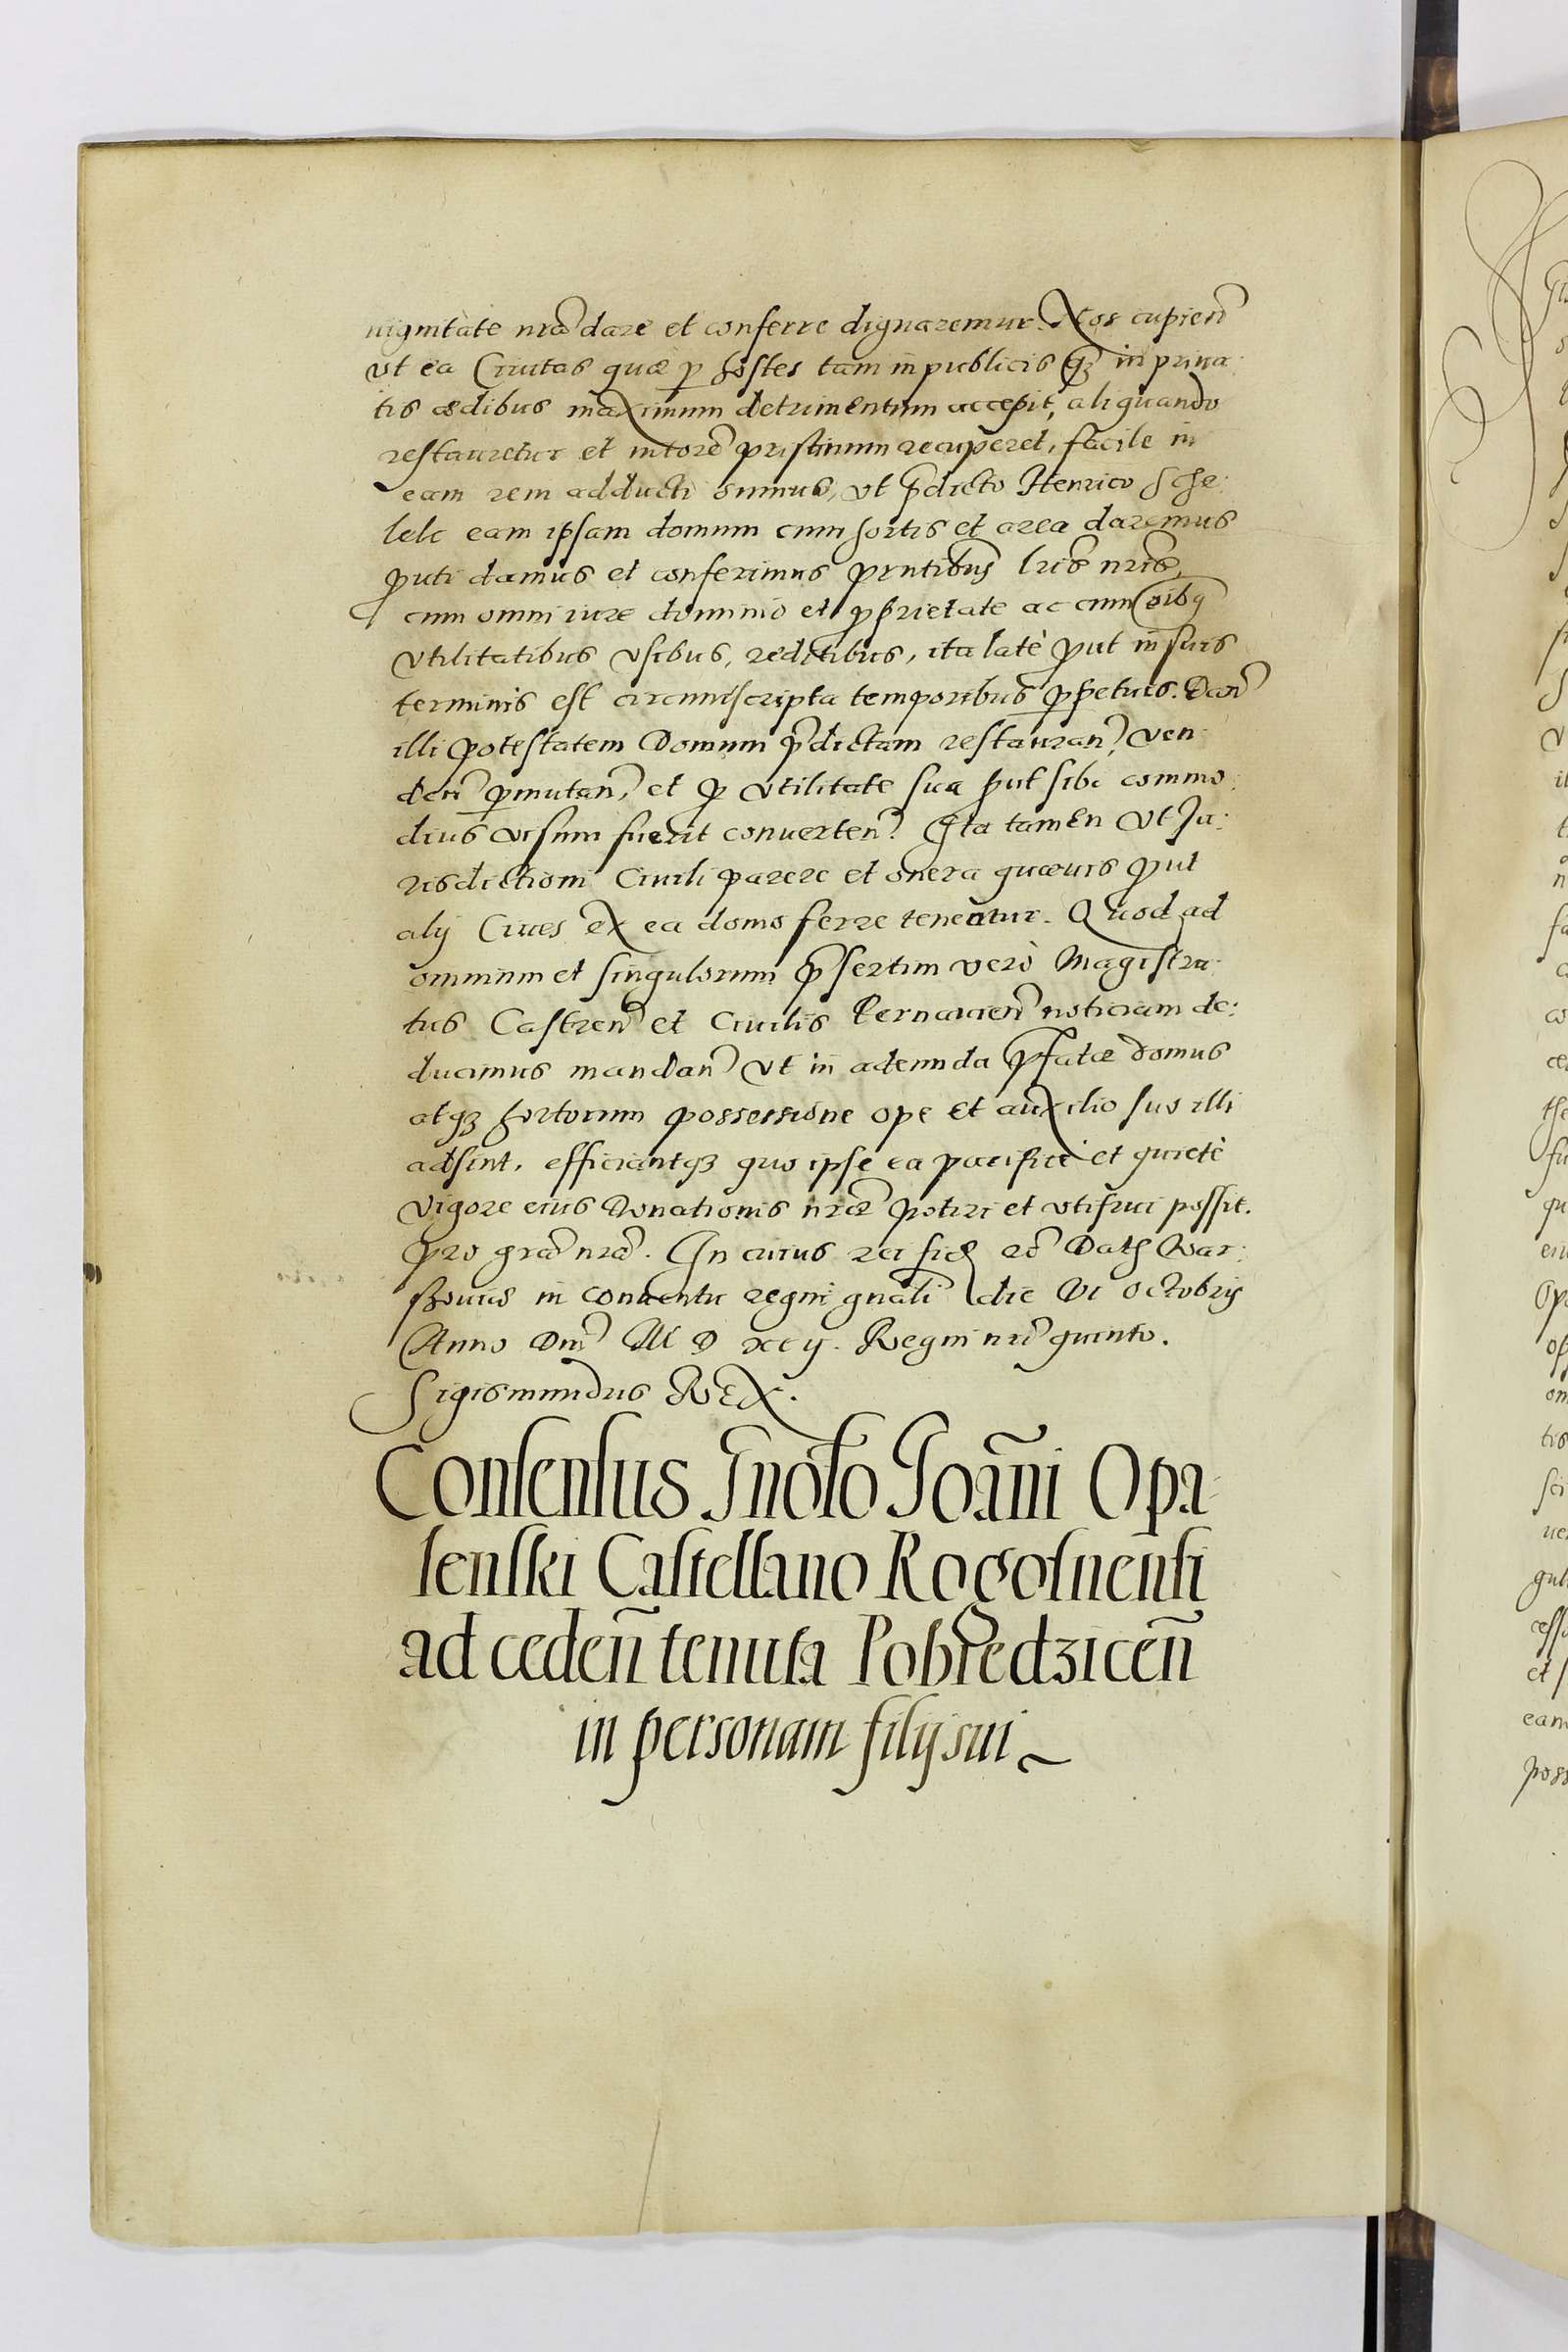 nignitate nrã dare et conferre dignaremur. Nos cupien̄
vt ea Ciuitas quæ ꝑ hostes tam in publicis qꝫ in priua:
tis ædibus maximum detrimentum accepit, aliquando
restauretur et nitorē pristinum recuperet, facile in
eam rem adducti sumus, vt p̄dicto Henrico Sche:
lek eam ipsam domum cum hortis et area daremus
ꝓuti damus et conferimus pn̄tibus lr̄is nr̄is,
cum omni iure dominio et ꝓprietate ac cum oībꝫ
vtilitatibus vsibus, reditibus, ita latè ꝓut in suis
terminis est circumscripta temporibus ꝑpetuis. Dan̄
illi potestatem Domum p̄dictam restauran̄, ven:
den̄ ꝑmutan̄, et ꝓ vtilitate sua ꝓut sibi commo:
dius visum fuerit conuerten̄. Ita tamen vt Ju:
risdictioni Ciuili parere et onera quæuis ꝓut
alij Ciues ex ea domo ferre teneatur. Quod ad
omnium et singulorum p̄sertim verò Magistra:
tus Castren̄ et Ciuilis Pernauien̄ noticiam de:
ducimus mandan̄ vt in adeunda p̄fatæ domus
atqꝫ hortorum possessione ope et auxilio suo illi
adsint, efficiantqꝫ quo ipse ea pacificè et quietè
vigore eius Donationis nr̄æ potiri et vtifrui possit.
Pro grã nrã. In cuius rei fid̄ ec̄. Dat̄ Var:
schouiæ in Conuentu regni gnali die VI Octobris
Anno Dn̄i M D XCij. Regni nr̄i quinto.
Sigismundus REX.
Consensus Gnoso Joanni Opa-
lenski Castellano Rogosnensi
ad ceden̄ tenuta Pobiedzicen̄
in personam filij sui